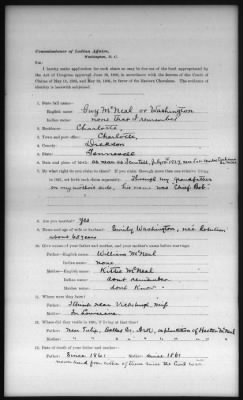 Commissioner of Indian Affairs,
Washington, D. C.
Sir:
I hereby make application for such share as may be due me of the fund appropriated by
the Act of Congress approved June 30, 1906, in accordance with the decrees of the Court of
Claims of May 18, 1905, and May 28, 1906, in favor of the Eastern Cherokees. The evidence of
identity is herewith subjoined.
1. State full name—
English name: Guy McNeal or Washington
Indian name: none that I remember
2. Residence: Charlotte,
3. Town and post office: Charlotte,
4. County: Dickson
5. State: Tennessee
6. Date and place of birth: as near as I can tell, July 10th 1827, near
7. By what right do you claim to share? If you claim through more than one relative living
in 1851, set forth each claim separately: Through my grandfather
on my mother's side, his name was Chief Bob.
8. Are you married? Yes
9. Name and age of wife or husband: Emily Washington, nee Robertson
about 60 years
10. Give names of your father and mother, and your mother's name before marriage.
Father—English name: William McNeal
Indian name: none
Mother—English name: Kittie McNeal
Indian name: dont remember
Maiden name: dont know
11. Where were they born?
Father: I think near Vicksburgh, Miss
Mother: In Louisiana
12. Where did they reside in 1851, if living at that time?
Father: Near Tulip, Dallas Co. Ark, on plantation of McNeal
Mother: " " " " " " "
13. Date of death of your father and mother—
Father: Since 1861 Mother: Since 1861
never heard from either of them since the Civil War